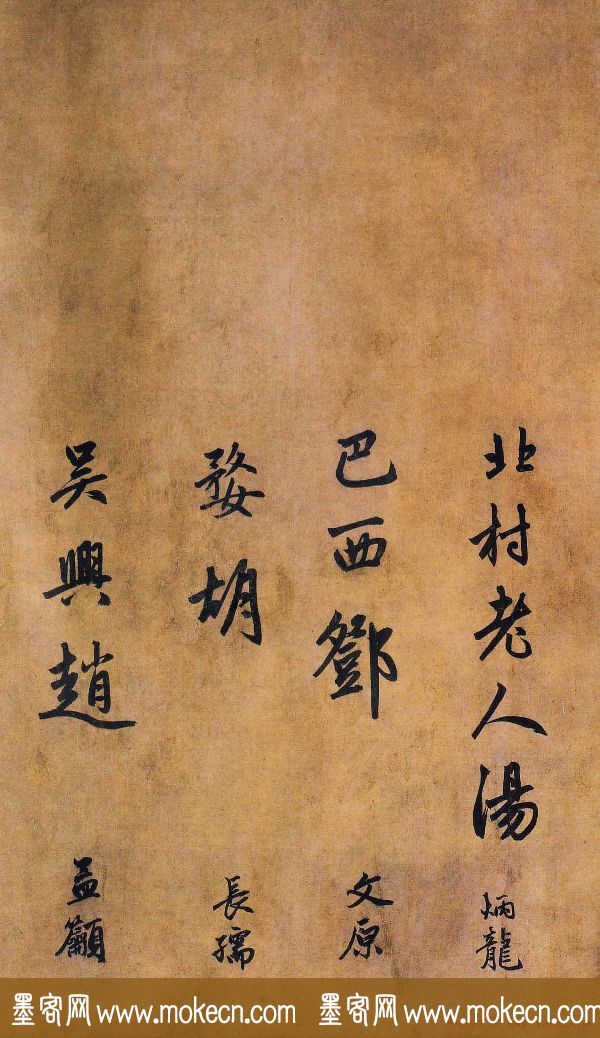 北村老人湯炳龍
巴西鄧文原
婺胡長孺
吳興趙孟籲
墨客网 www.mokecn.com 墨客网 www.mokecn.com